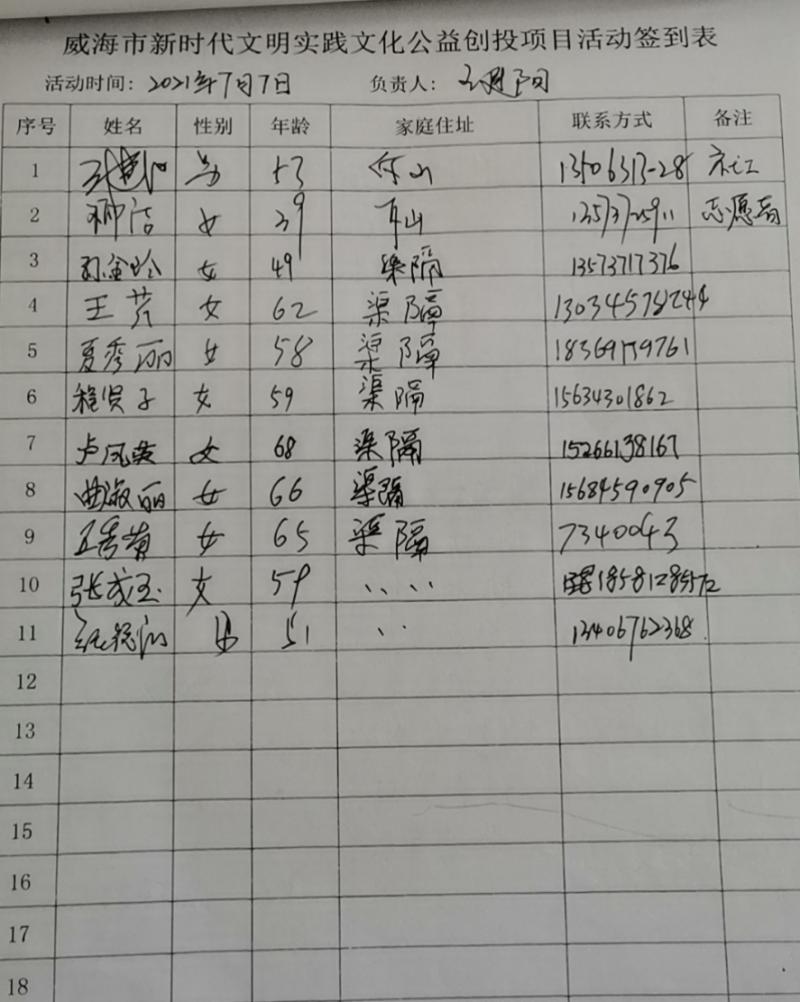 威海市新时代文明实践文化公益创投项目活动签到表
活动时间：2021年7月7日 负责人：
序号 姓名 性别 年龄 家庭住址 联系方式 备注
1 男 53 社工
2 柳洁 女 39 志愿者
3 孙金玲 女 49 渠隔 13573717376
4 王芳 女 62 渠隔
5 夏秀丽 女 58 渠隔
6 女 59 渠隔 15634301862
7 卢凤英 女 68 渠隔 15266138167
8 曲淑丽 女 66 渠隔 15684590905
9 女 65 渠隔 7340043
10 张成玉 女 59 、、 、、
11 男 51 、、 13406762368
12
13
14
15
16
17
18